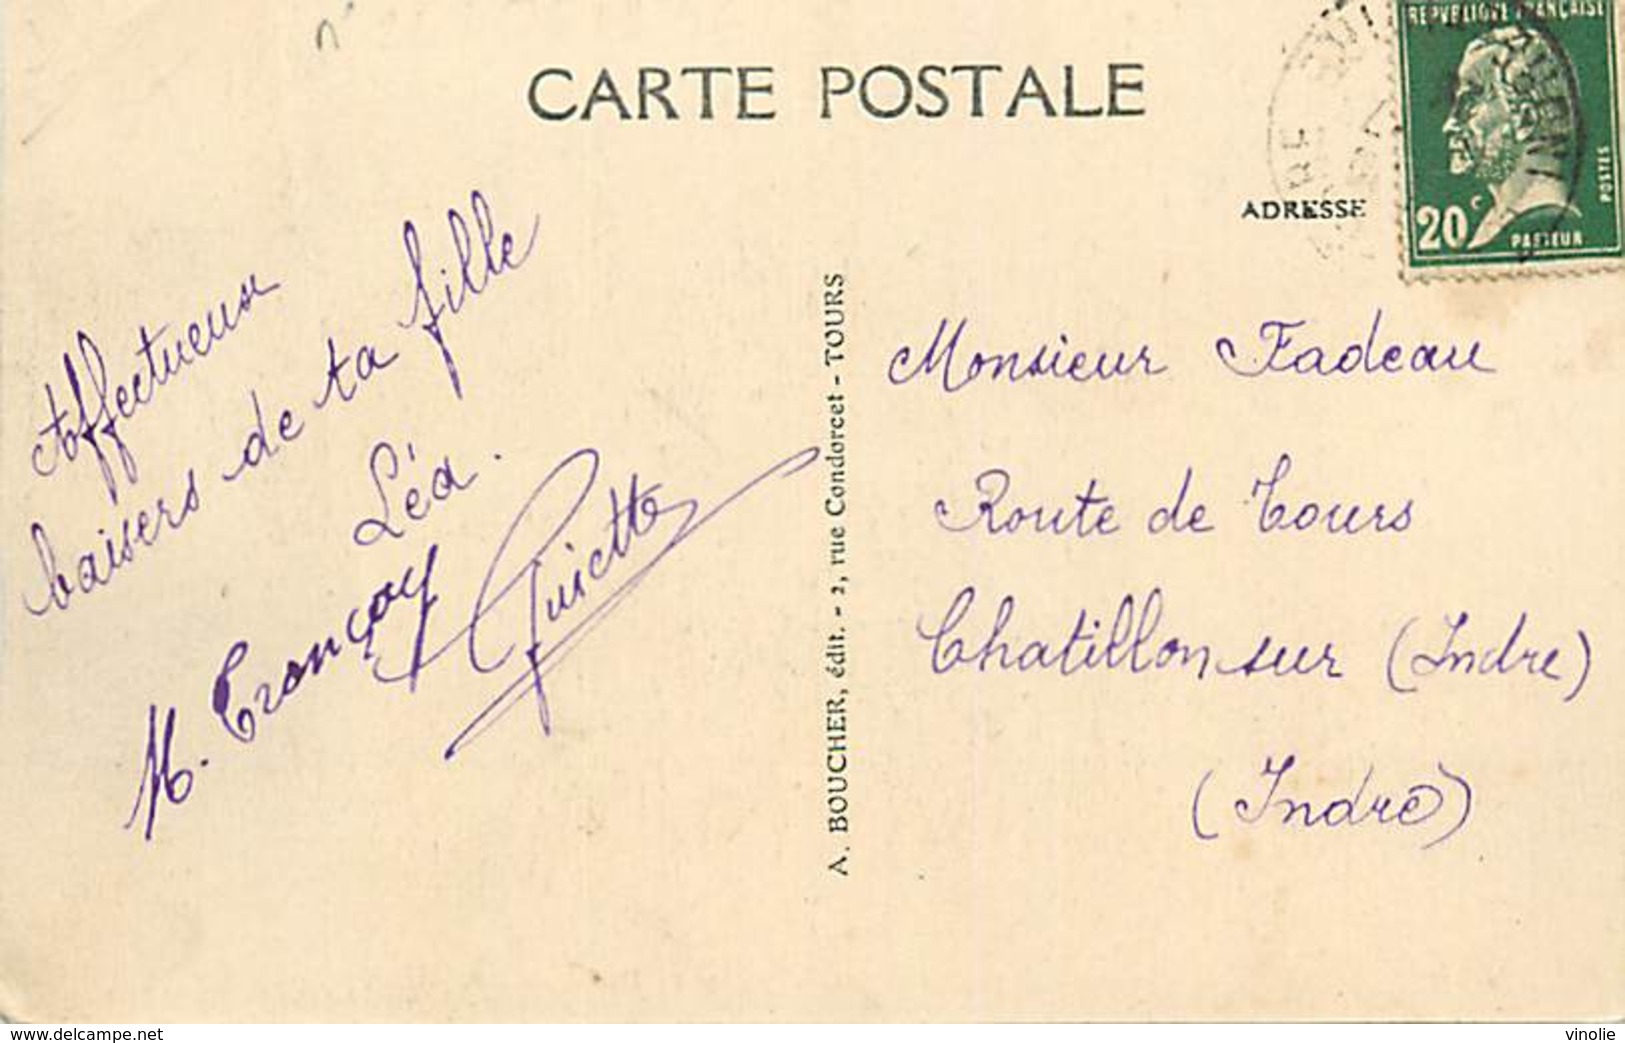 CARTE POSTALE
REPVBLIQVE FRANÇAISE
POSTES
20c
PASTEUR
ADRESSE
Affectueux
baisers de ta fille
Léa.
M. Trançay
Guiette
A. BOUCHER, édit. - 2, rue Condorcet - TOURS
Monsieur Fadeau
Route de Tours
Chatillon sur (Indre)
(Indre)
www.delcampe.net
vinolie